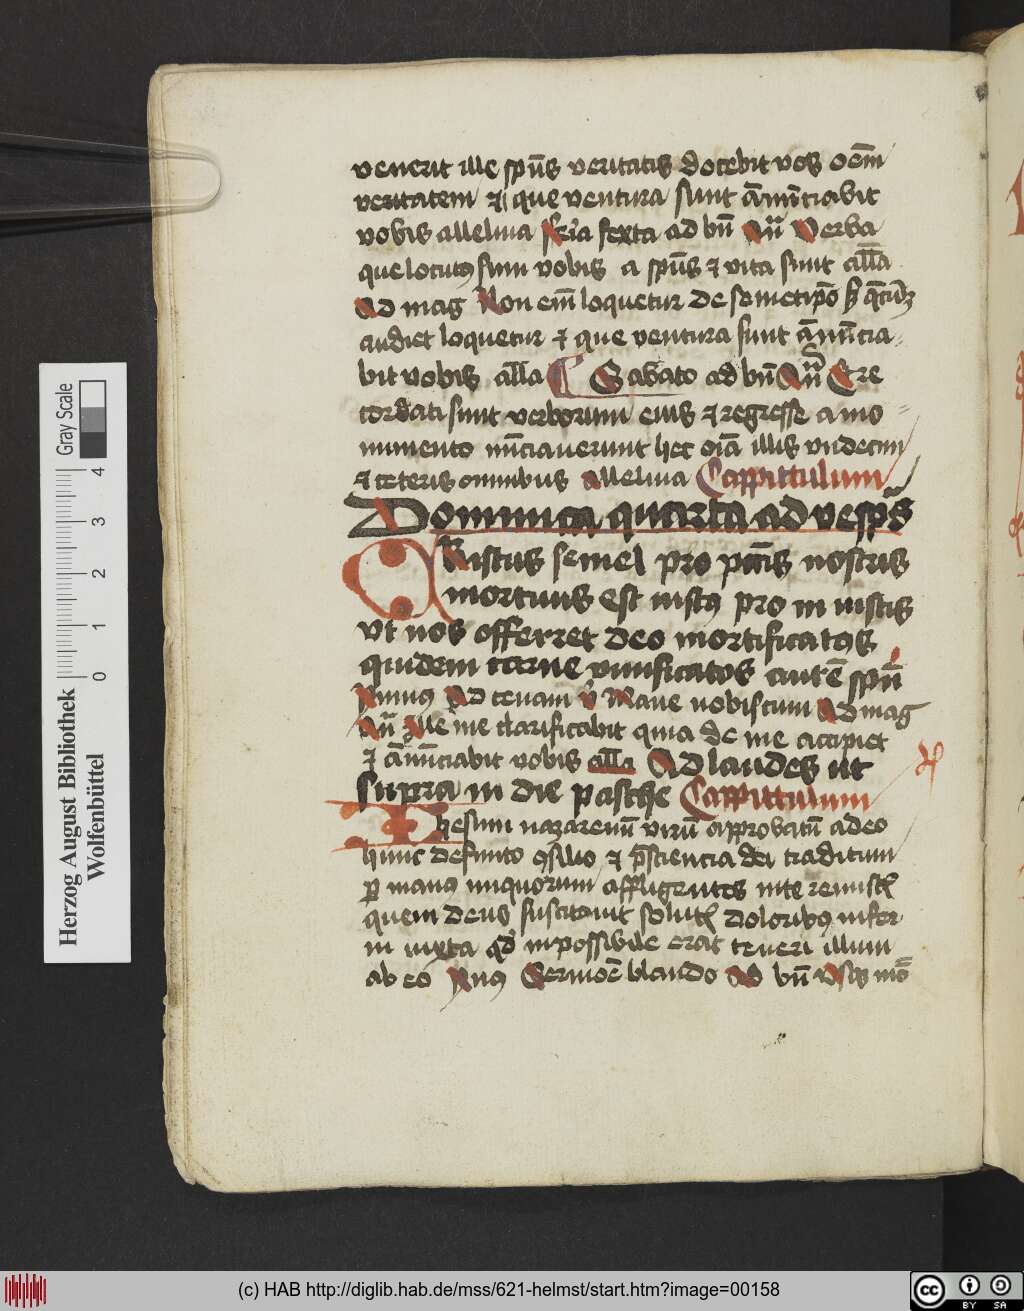 venerit ille spūs veritatis docebit vos oēm
veritatem et que ventura sunt ānūciabit
vobis alleluia feria sexta ad bn̄ An̄ Verba
que locutus sum vobis spūs et vita sunt all̄a
Ad mag Non em̄ loquetur de semetipō
audiet loquetur et que ventura sunt ānūcia
bit vobis all̄a Sabato ad bn̄ An̄ Et re
cordati sunt verborum eius et regresse a mo
numento nūciaverunt hec oīa illis undecim
et ceteris omnibus alleluia Cappittulum
Dominica quarta ad vesp̄s
Christus semel pro pctīs nostris
mortuus est iustus pro in iustis
ut nos offerret deo mortificatos
quidem carne vivificatos autē spū
Ympnus Ad cenam v̄ Mane nobiscum Ad mag
An̄ Ille me clarificabit quia de me accipiet
et ānūciabit vobis all̄a Ad laudes ut
supra in die pasche Cappittulum
Ihesum nazarenū virū approbatū a deo
hunc definito consilio et p̄sciencia dei traditum
per manus iniquorum affligentes
quem deus suscitavit solutis doloribus infer
ni iuxta quod inpossibile erat teneri illum
ab eo Ympnus Sermone blando Ad bn̄
Herzog August Bibliothek
Wolfenbüttel
0 1 2 3 4
Gray Scale
(c) HAB http://diglib.hab.de/mss/621-helmst/start.htm?image=00158
cc BY SA